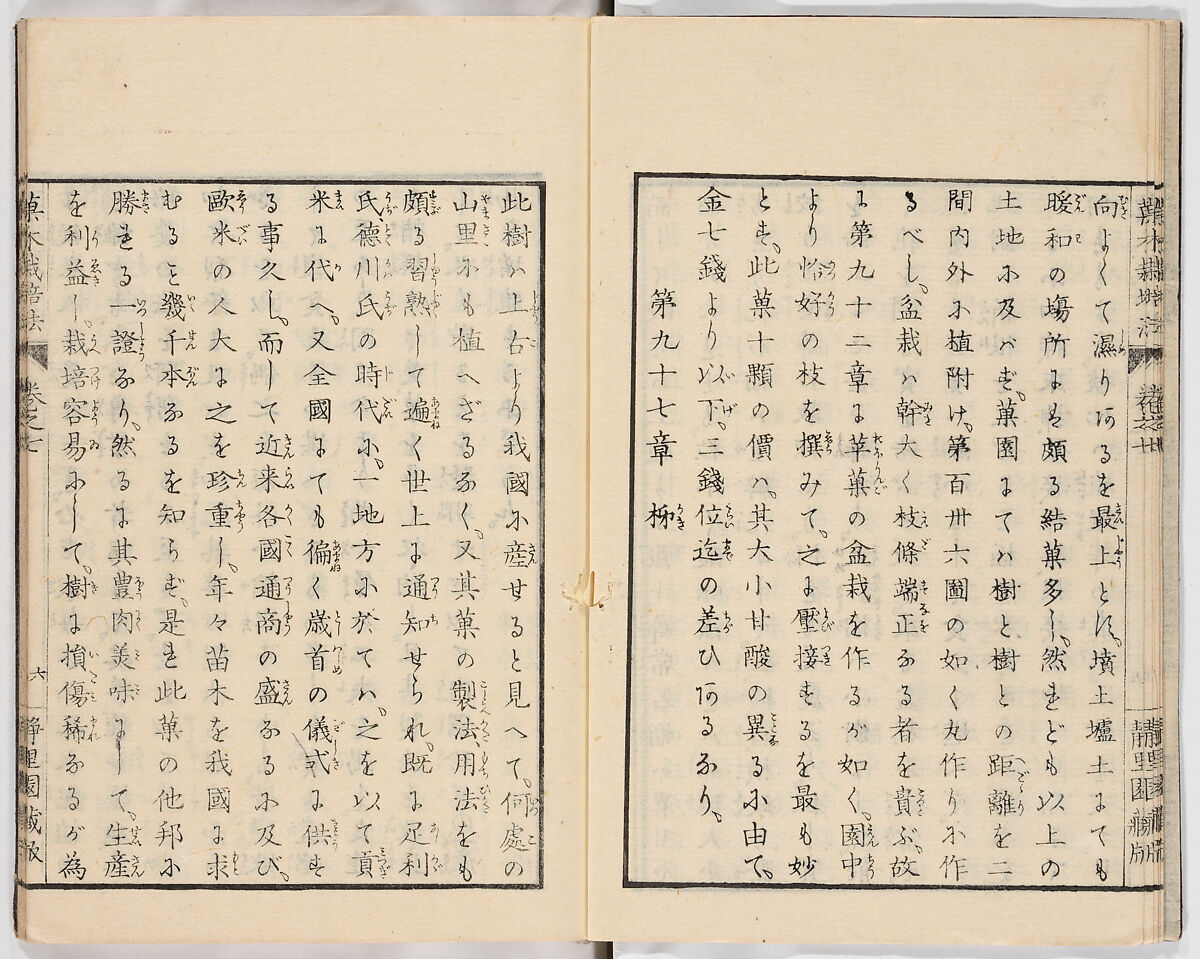 菓木栽培法 卷之七 靜里園藏版
向よくて濕り阿るを最上と須。墳土壚土にても
暖和の塲所には頗る結菓多し。然れども以上の
土地に及バず。菓園にてハ樹と樹との距離を二
間内外に植附け。第百卅六圖の如く丸作りに作
るべし。盆栽ハ幹大く枝條端正なる者を貴ぶ。故
に第九十二章に苹菓の盆栽を作るが如く。園中
より恰好の枝を撰みて。之に壓接するを最も妙
とす。此菓十顆の價ハ。其大小甘酸の異るに由て。
金七錢より以下。三錢位迄の差ひ阿るなり。
第九十七章 柹
此樹ハ上古より我國に産せると見へて。何處の
山里にも植へざるなく。又其菓の製法用法をも
頗る習熟して遍く世上に通知せられ。既に足利
氏德川氏の時代に。一地方に於てハ。之を以て貢
米に代へ。又全國にても徧く歳首の儀式に供す
る事久し。而して近来各國通商の盛なるに及び。
歐米の人大に之を珍重し。年々苗木を我國に求
むること幾千本なるを知らず。是れ此菓の他邦に
勝れる一證なり。然るに其豊肉美味にして。生産
を利益し。栽培容易にして。樹に損傷稀なるが為
菓木栽培法 卷之七 六 靜里園藏版